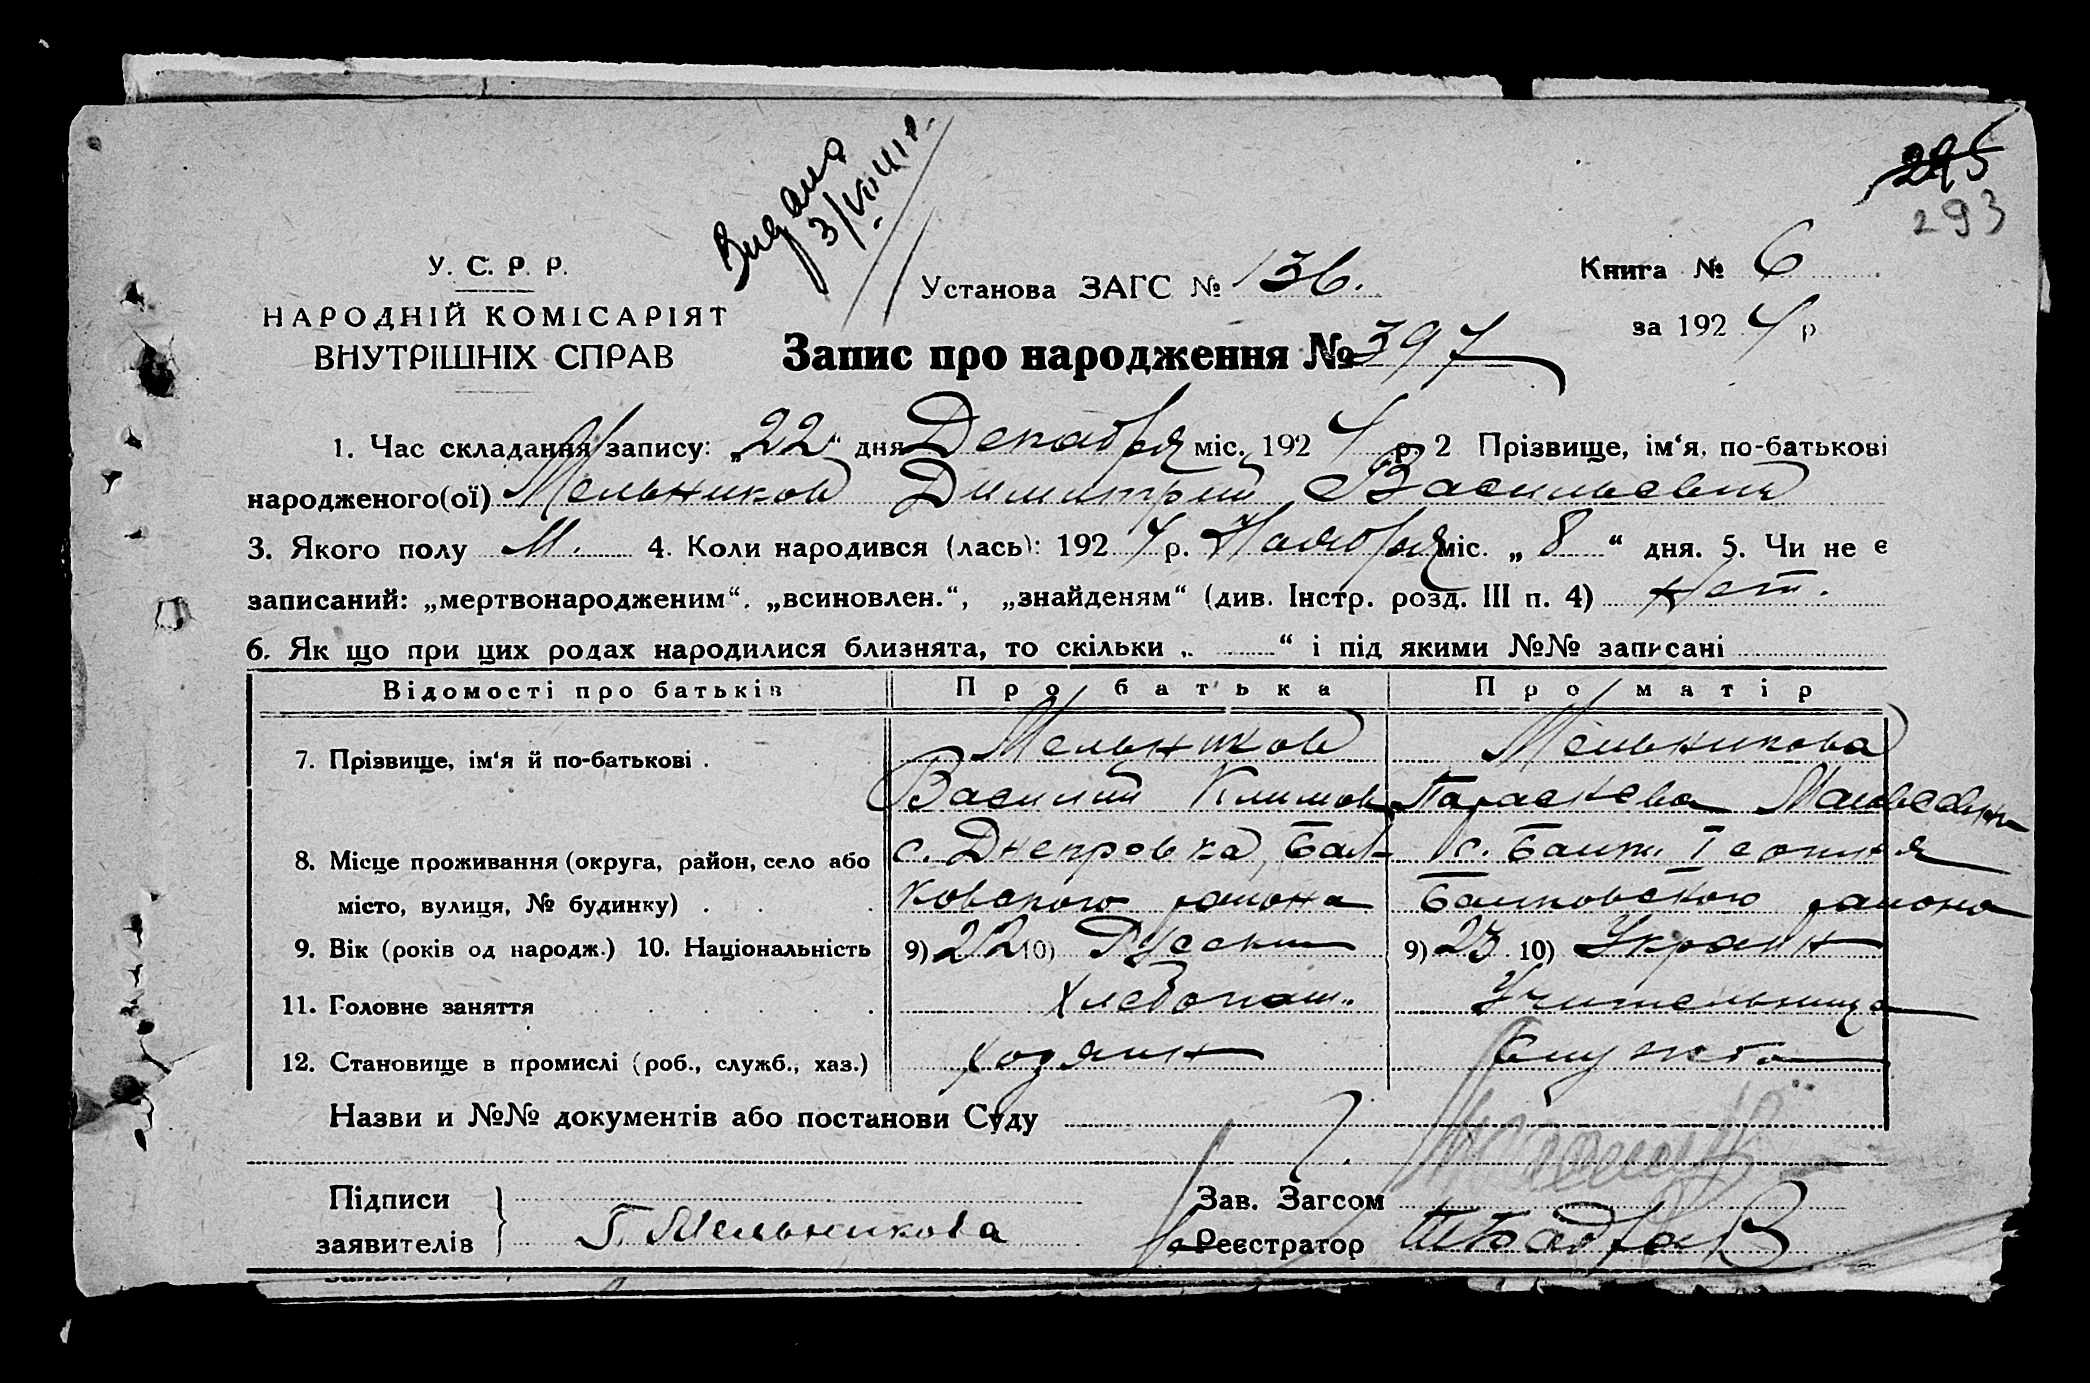 295
293
Видана
У. С. Р. Р.
НАРОДНІЙ КОМІСАРІЯТ
ВНУТРІШНІХ СПРАВ
Установа ЗАГС № 136.
Книга № 6
за 1924 р
Запис про народження № 397
1. Час складання запису: „22“ дня Декабря міс. 1924 р. 2 Прізвище, ім‘я, по-батькові
народженого(ої) Мельников Димитрий Васильевич
3. Якого полу М. 4. Коли народився (лась): 1924 р. Ноября міс. „8“ дня. 5. Чи не є
записаний: „мертвонародженим“, „всиновлен.“, „знайденям“ (див. Інстр. розд. III п. 4) Нет.
6. Як що при цих родах народилися близнята, то скільки „ “ і під якими №№ записані
Відомості про батьків Про батька Про матір
7. Прізвище, ім‘я й по-батькові . Мельников Мельникова
Василий Климов Параскева
8. Місце проживання (округа, район, село або с. Днепровка, Бал- с. Балк.
місто, вулиця, № будинку) . ковского района Балковского района
9. Вік (років од народж.) 10. Національність 9) 22 10) Русский 9) 23 10) Украин
11. Головне заняття Хлебопаш.. Учительница
12. Становище в промислі (роб., служб., хаз.) Хозяин Служба
Назви и №№ документів або постанови Суду
Підписи Зав. Загсом
заявителів П. Мельникова Реєстратор